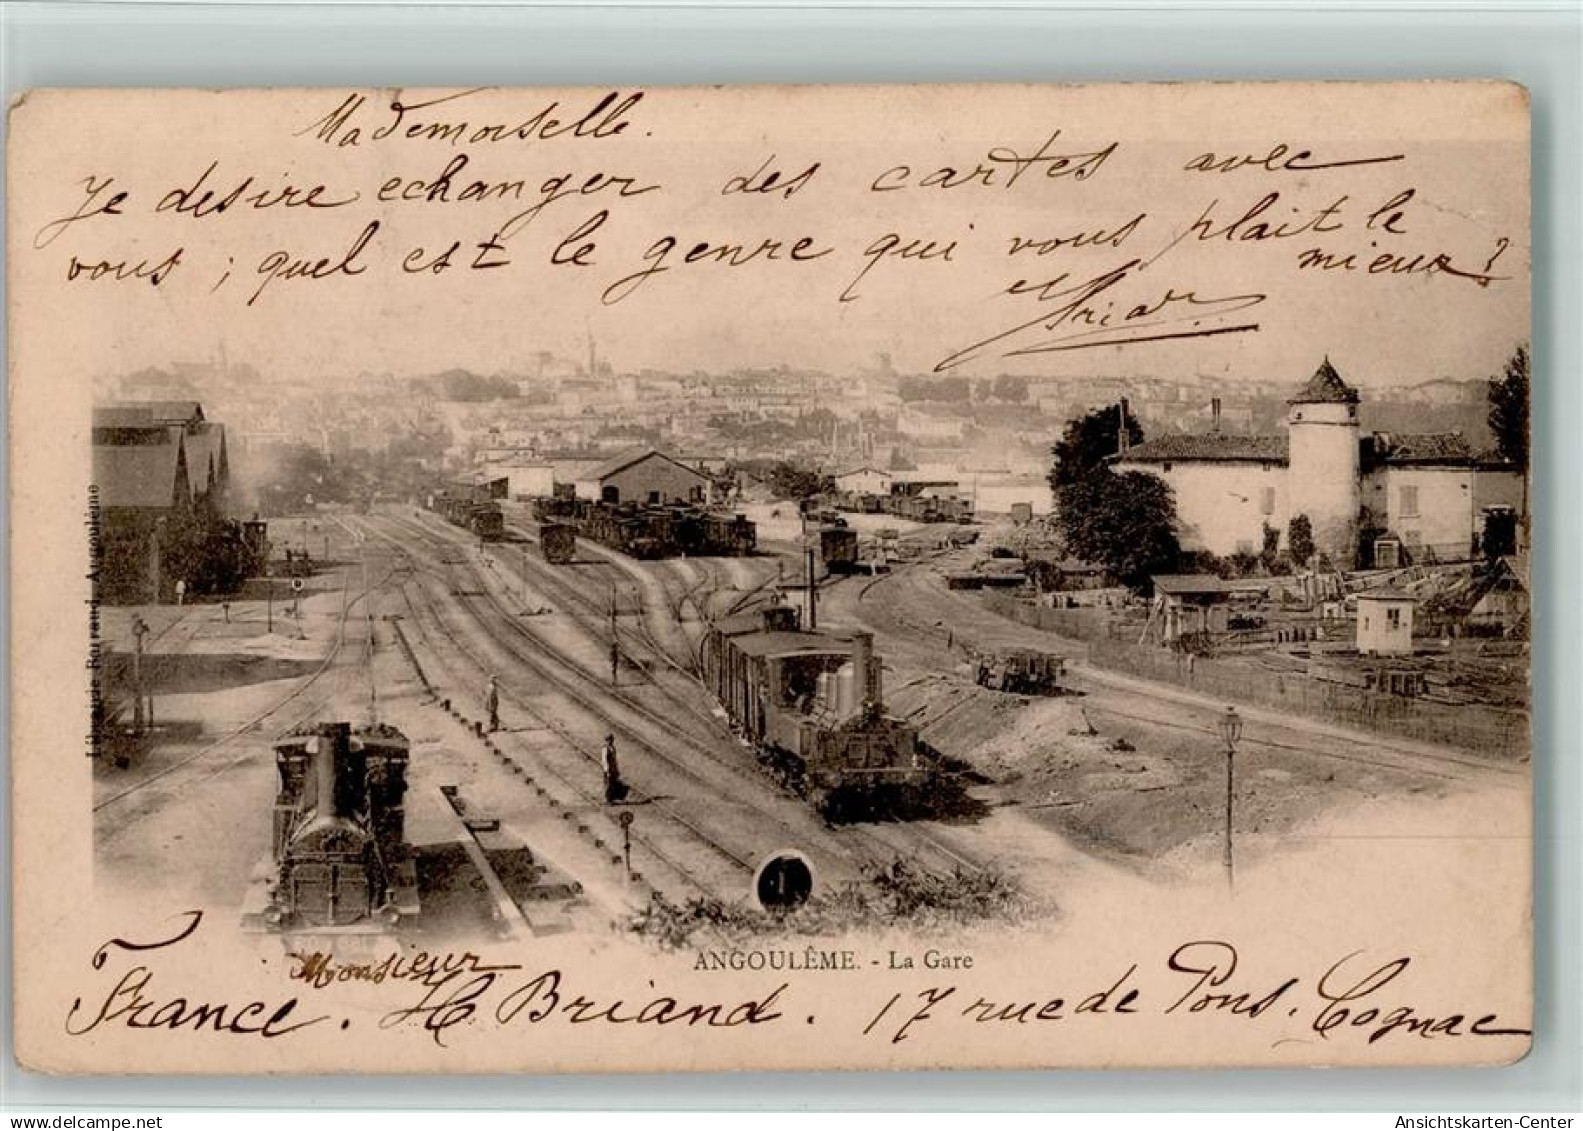 Mademoiselle.
Je desire echanger des cartes avec
vous ; quel est le genre qui vous plait le
mieux ?
Librairie Barraud, Angoulême
1
ANGOULÊME. - La Gare
Monsieur
France. H Briand. 17 rue de Pons. Cognac
delcampe.net
Ansichtskarten-Center